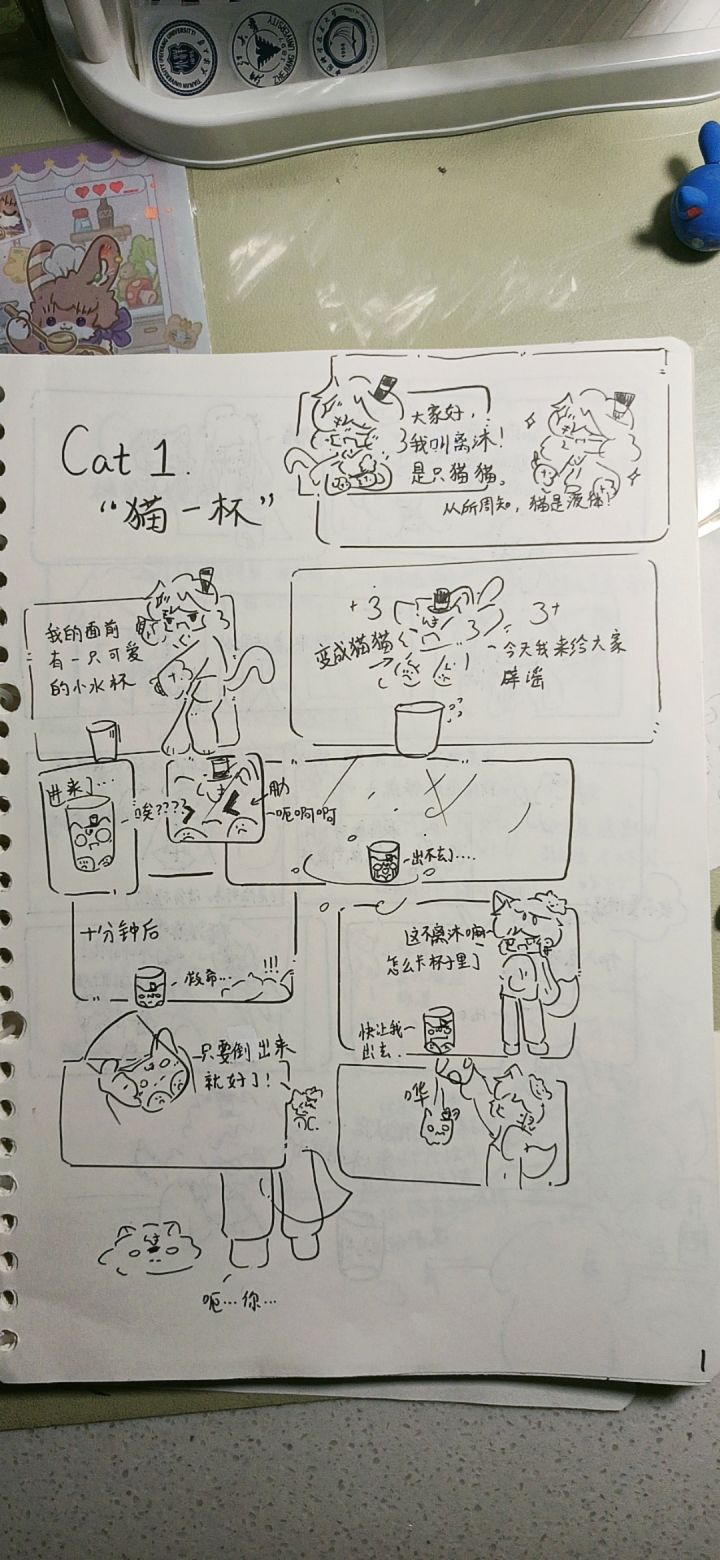 TIANJIN UNIVERSITY
Cat 1.
“猫一杯”
大家好，
我叫离沐！
是只猫猫。
从所周知，猫是液体！
我的面前
有一只可爱
的小水杯
变成猫猫
今天我来给大家
辟谣
进来了…
唉????
肋
呃啊啊
出不去了….
十分钟后
!!!
这不离沐嘛
怎么卡杯子里了
快让我
出去.
只要倒出来
就好了！
哗
呃…你…
1